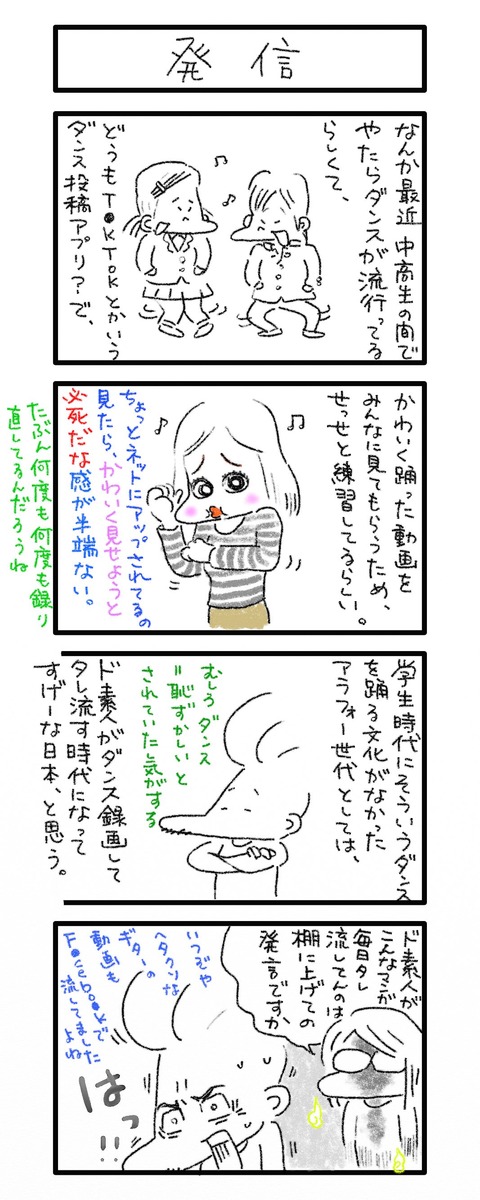 発信
なんか最近中高生の間で
やたらダンスが流行ってる
らしくて、
どうもT●kTokとかいう
ダンス投稿アプリ?で、
かわいく踊った動画を
みんなに見てもらうため、
せっせと練習してるらしい。
ちょっとネットにアップされてるの
見たら、かわいく見せようと
必死だな感が半端ない。
たぶん何度も何度も録り
直してるんだろうね
学生時代にそういうダンス
を踊る文化がなかった
アラフォー世代としては、
むしろダンス
=恥ずかしいと
されていた気がする
ド素人がダンス録画して
タレ流す時代になって
すげーな日本、と思う。
ド素人が
こんなマンガ
毎日タレ
流してんのは
棚に上げての
発言ですか
いつぞや
ヘタクソな
ギターの
動画も
F●ceb●●kで
流してました
よね
はっ!!